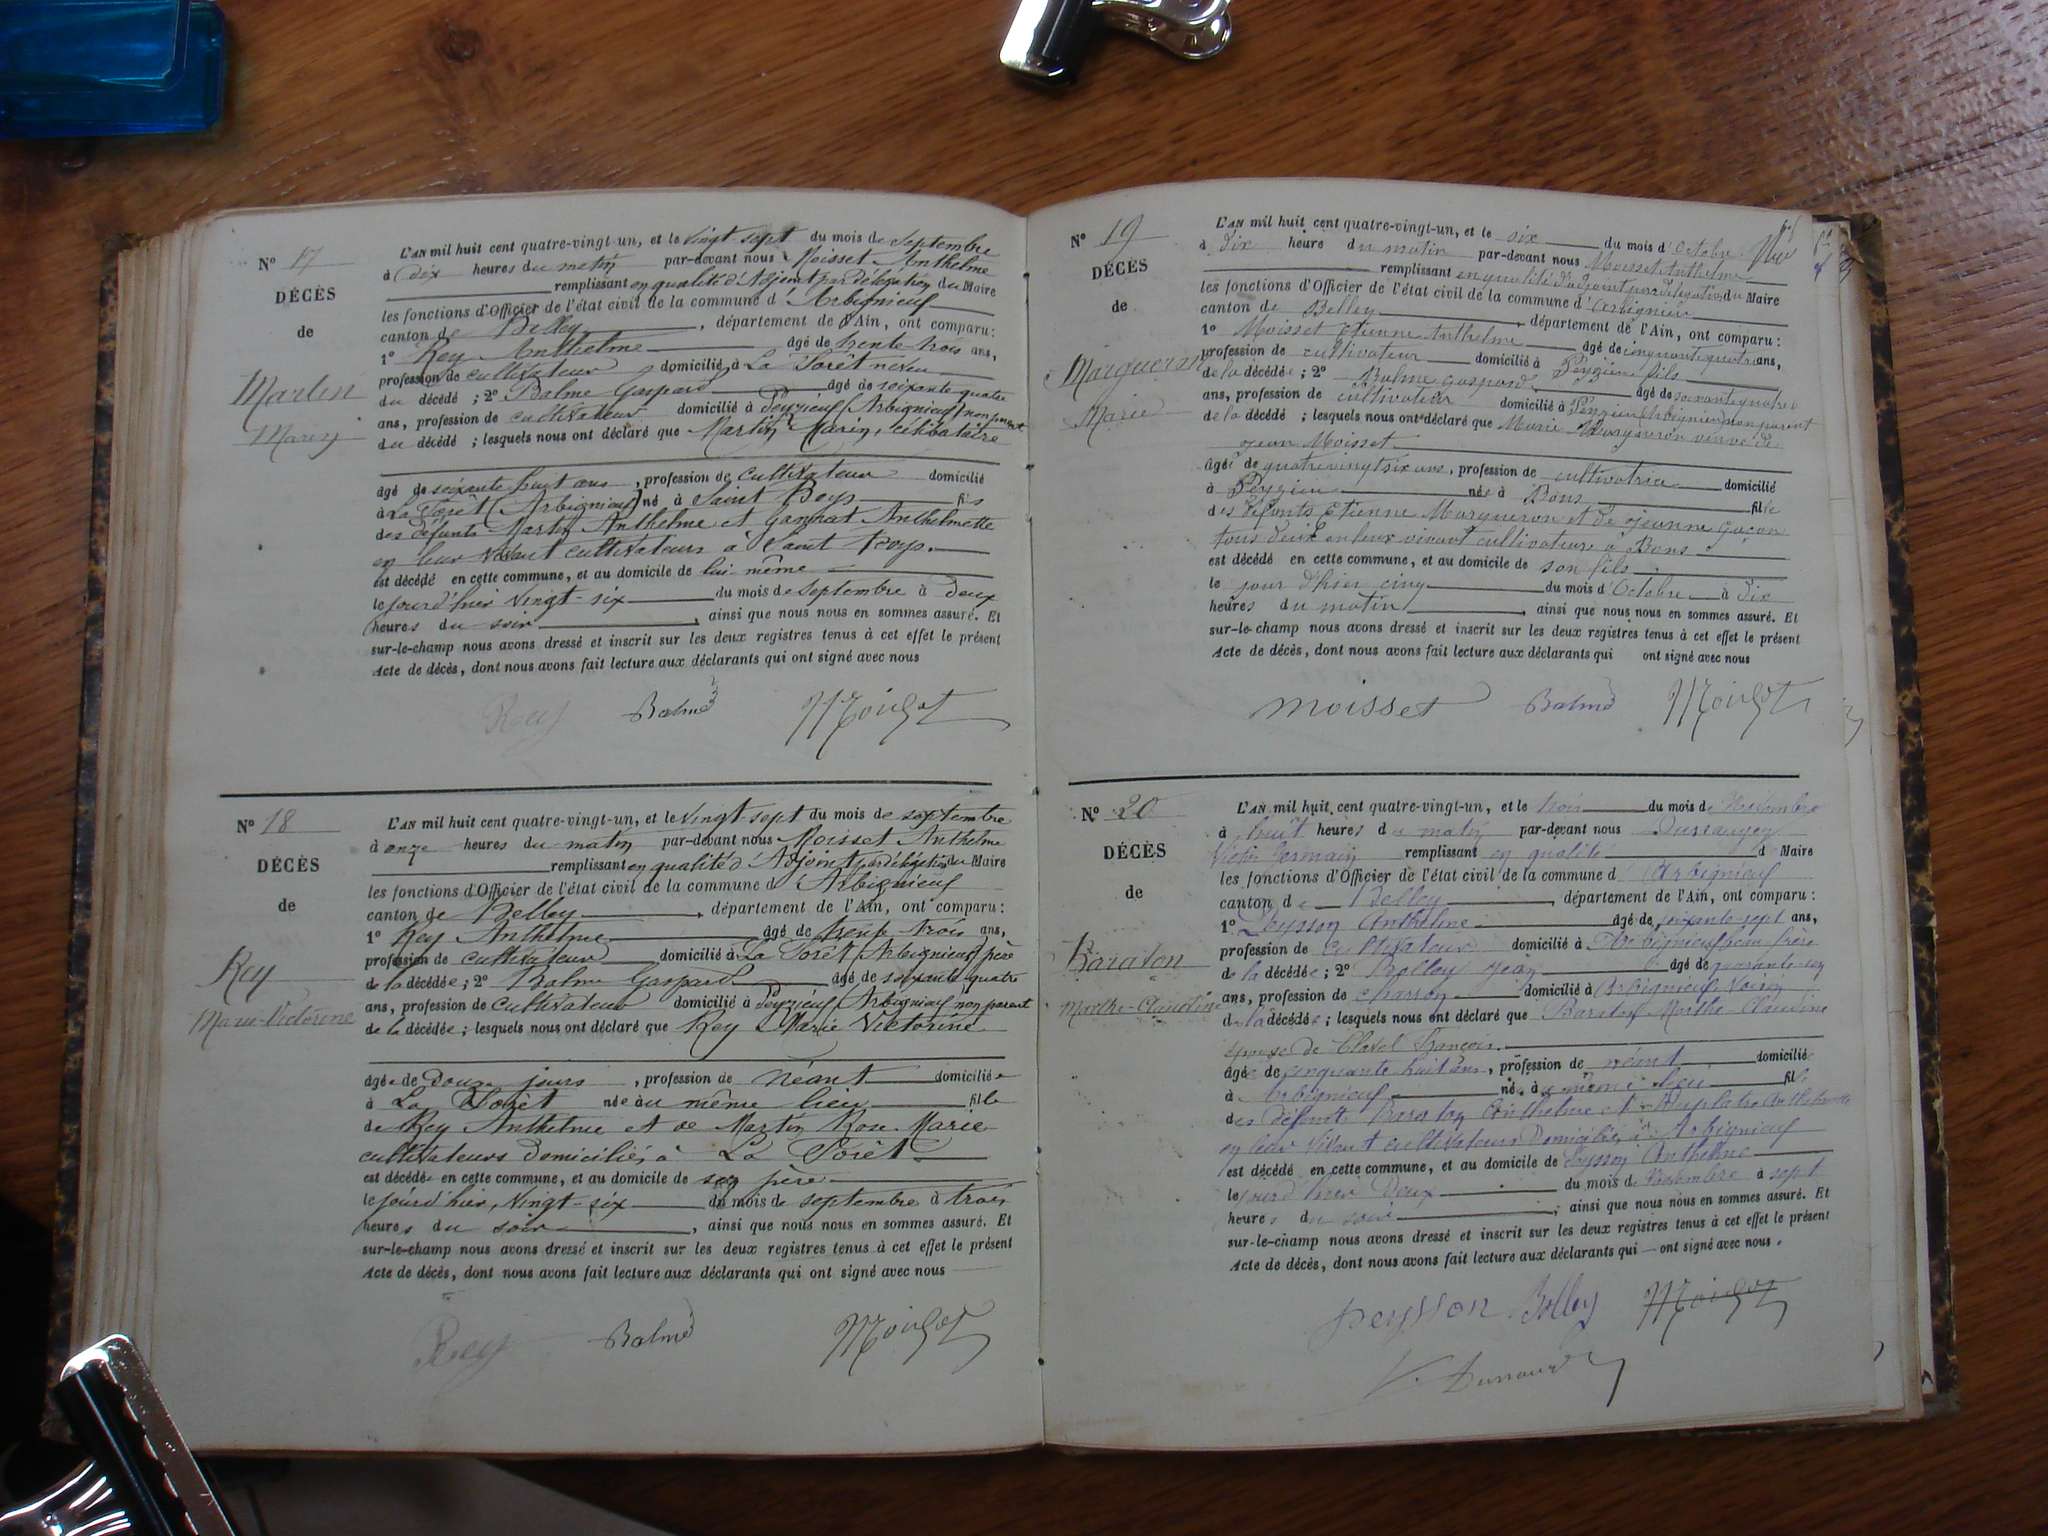 Nº 17
DÉCÈS
de
Martin
Marin
L'AN mil huit cent quatre-vingt-un, et le vingt-sept du mois de septembre
à dix heures du matin par-devant nous Moisset Anthelme
remplissant en qualité d'Adjoint par délégation du Maire
les fonctions d'Officier de l'état civil de la commune d'Arbignieu
canton de Belley, département de l'Ain, ont comparu:
1º Rey Anthelme âgé de trente trois ans,
profession de cultivateur domicilié à La Forêt neveu
du décédé; 2º Balme Gaspard âgé de soixante quatre
ans, profession de cultivateur domicilié à Peyzieu (Arbignieu) non parent
du décédé; lesquels nous ont déclaré que Martin Marin, célibataire
âgé de soixante huit ans, profession de cultivateur domicilié
à La Forêt (Arbignieu) né à Saint Bois fils
des défunts Martin Anthelme et Gannat Anthelmette
en leur vivant cultivateurs à Saint Bois.
est décédé en cette commune, et au domicile de lui-même
le jour d'hier vingt-six du mois de septembre à deux
heures du soir, ainsi que nous nous en sommes assuré. Et
sur-le-champ nous avons dressé et inscrit sur les deux registres tenus à cet effet le présent
Acte de décès, dont nous avons fait lecture aux déclarants qui ont signé avec nous
Rey Balme Moisset
Nº 18
DÉCÈS
de
Rey
Marie-Victorine
L'AN mil huit cent quatre-vingt-un, et le vingt-sept du mois de septembre
à onze heures du matin par-devant nous Moisset Anthelme
remplissant en qualité d'Adjoint par délégation du Maire
les fonctions d'Officier de l'état civil de la commune d'Arbignieu
canton de Belley, département de l'Ain, ont comparu:
1º Rey Anthelme âgé de trente trois ans,
profession de cultivateur domicilié à La Forêt (Arbignieu) père
de la décédée; 2º Balme Gaspard âgé de soixante quatre
ans, profession de cultivateur domicilié à Peyzieu Arbignieu non parent
de la décédée; lesquels nous ont déclaré que Rey Marie Victorine
âgée de douze jours, profession de néant domiciliée
à La Forêt née au même lieu fille
de Rey Anthelme et de Martin Rose-Marie
cultivateurs domiciliés à La Forêt.
est décédée en cette commune, et au domicile de son père
le jour d'hier, vingt-six du mois de septembre à trois
heures du soir, ainsi que nous nous en sommes assuré. Et
sur-le-champ nous avons dressé et inscrit sur les deux registres tenus à cet effet le présent
Acte de décès, dont nous avons fait lecture aux déclarants qui ont signé avec nous
Rey Balme Moisset
Nº 19
DÉCÈS
de
Margueron
Marie
L'AN mil huit cent quatre-vingt-un, et le six du mois d'octobre
à dix heure du matin par-devant nous Moisset Anthelme
remplissant en qualité d'adjoint par délégation du Maire
les fonctions d'Officier de l'état civil de la commune d'Arbignieu
canton de Belley, département de l'Ain, ont comparu:
1º Moisset Etienne Anthelme âgé de cinquante quatre ans,
profession de cultivateur domicilié à Peyzieu fils
de la décédée; 2º Balme Gaspard âgé de soixante quatre
ans, profession de cultivateur domicilié à Peyzieu (Arbignieu) non parent
de la décédé; lesquels nous ont déclaré que Marie Margueron veuve de
Jean Moisset
âgé de quatre vingt six ans, profession de cultivatrice domicilié
à Peyzieu née à Bons fille
des défunts Etienne Margueron et de Jeanne Gaçon
tous deux en leur vivant cultivateurs à Bons
est décédé en cette commune, et au domicile de son fils
le jour d'hier cinq du mois d'Octobre à dix
heures du matin, ainsi que nous nous en sommes assuré. Et
sur-le-champ nous avons dressé et inscrit sur les deux registres tenus à cet effet le présent
Acte de décès, dont nous avons fait lecture aux déclarants qui ont signé avec nous
Moisset Balme Moisset
Nº 20
DÉCÈS
de
Baraton
Marthe-Claudine
L'AN mil huit cent quatre-vingt-un, et le trois du mois de Novembre
à huit heures du matin par-devant nous
Victor Germain remplissant en qualité d Maire
les fonctions d'Officier de l'état civil de la commune d'Arbignieu
canton de Belley, département de l'Ain, ont comparu:
1º Peysson Anthelme âgé de soixante-sept ans,
profession de cultivateur domicilié à Arbignieu beau frère
de la décédée; 2º Bolley Jean âgé de quarante-cinq
ans, profession de charron domicilié à Arbignieu voisin
de la décédée; lesquels nous ont déclaré que Baraton Marthe-Claudine
épouse de Clavel François.
âgée de cinquante huit ans, profession de néant domiciliée
à Arbignieu née au même lieu fille
des défunts Baraton Anthelme et Anthelmette
en leur vivant cultivateurs domiciliés à Arbignieu
est décédé en cette commune, et au domicile de Peysson Anthelme
le jour d'hier deux du mois de Novembre à sept
heures du soir, ainsi que nous nous en sommes assuré. Et
sur-le-champ nous avons dressé et inscrit sur les deux registres tenus à cet effet le présent
Acte de décès, dont nous avons fait lecture aux déclarants qui ont signé avec nous.
peysson Bolley Moisset